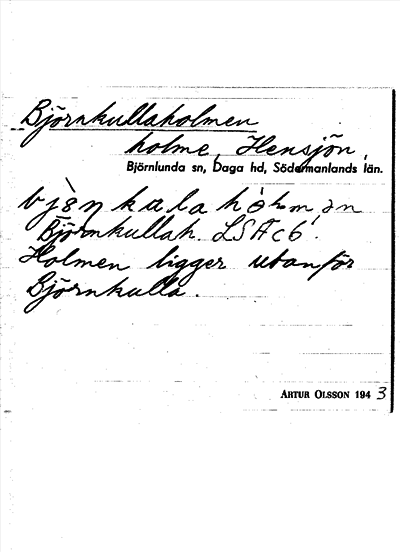 Björnkullaholmen
holme, Hensjön,
Björnlunda sn, Daga hd, Södermanlands län.
Björnkullah. LSA c6.
Holmen ligger utanför
Björnkulla.
ARTUR OLSSON 1943